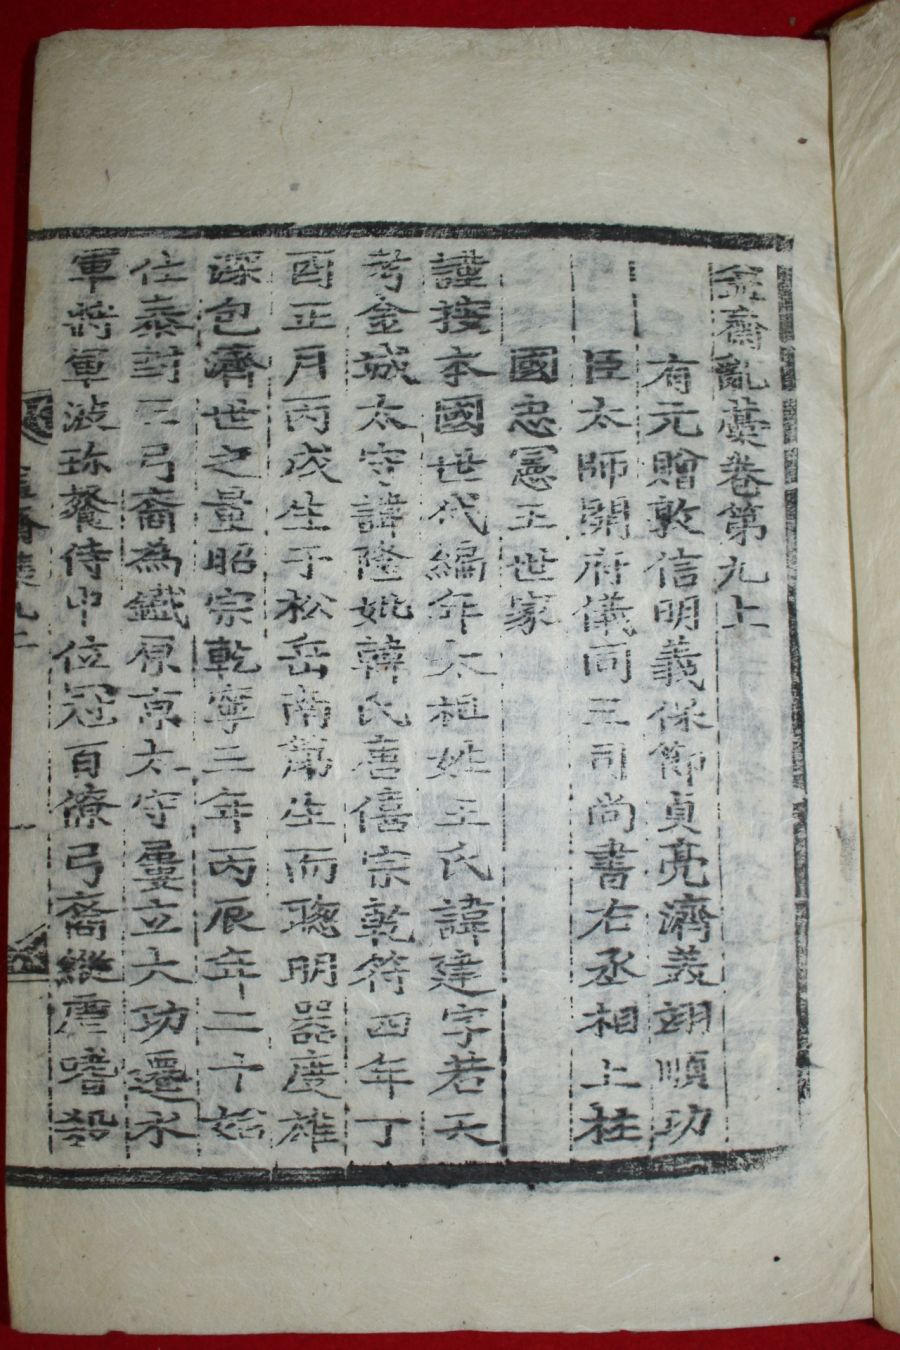 益齋亂藁卷第九上
有元贈敦信明義保節貞亮濟美翊順功
臣太師開府儀同三司尚書右丞相上柱
國忠憲王世家
謹按本國世代編年太祖姓王氏諱建字若天
考金城太守諱隆妣韓氏唐僖宗乾符四年丁
酉正月丙戌生于松岳南第生而聰明器度雄
深包濟世之量昭宗乾寧三年丙辰年二十始
仕泰封王弓裔為鐵原京太守曼立大功遷水
軍將軍波珍餐侍中位冠百僚弓裔縱虐嗜殺
益齋集九上
一